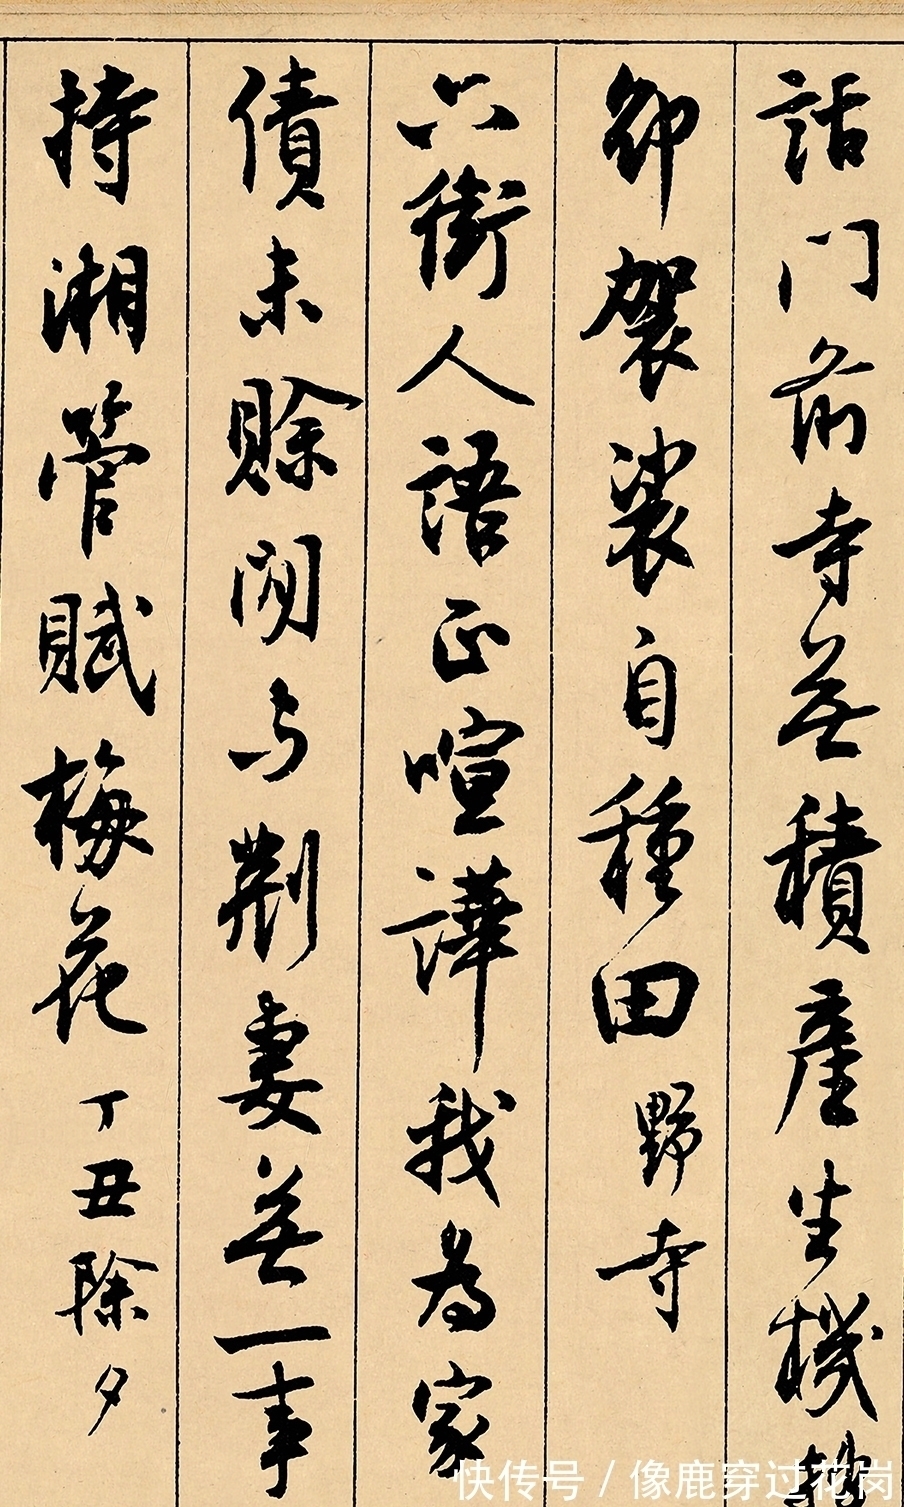 話门前寺無積產生機
卸袈裟自種田野寺
六街人語正喧譁我為家
債未賒閒与荆妻無一事
持湘管賦梅花丁丑除夕
快传号 / 像鹿穿过花岗